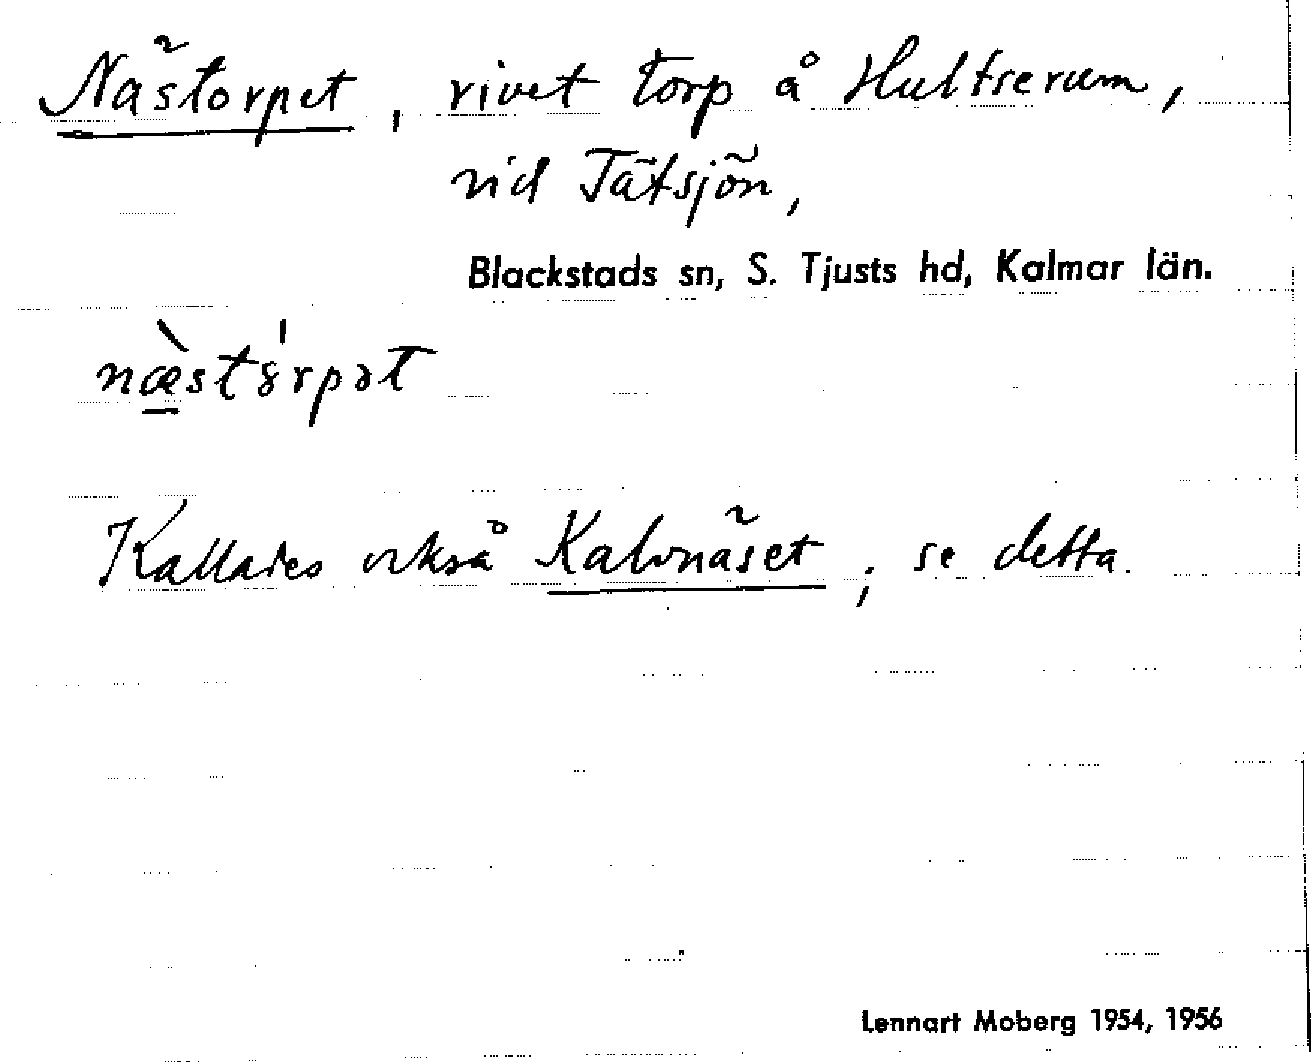 Nästorpet, rivet torp å Hultserum,
vid Tätsjön,
Blackstads sn, S. Tjusts hd, Kalmar län.
næ̀stȣ́rpət
Kallades också Kalvnäset; se detta.
Lennart Moberg 1954, 1956